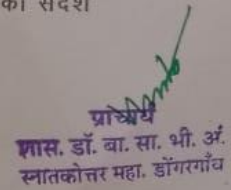 का संदेश
प्राचार्य
शास. डॉ. बा. सा. भी. अं.
स्नातकोत्तर महा. डोंगरगाँव